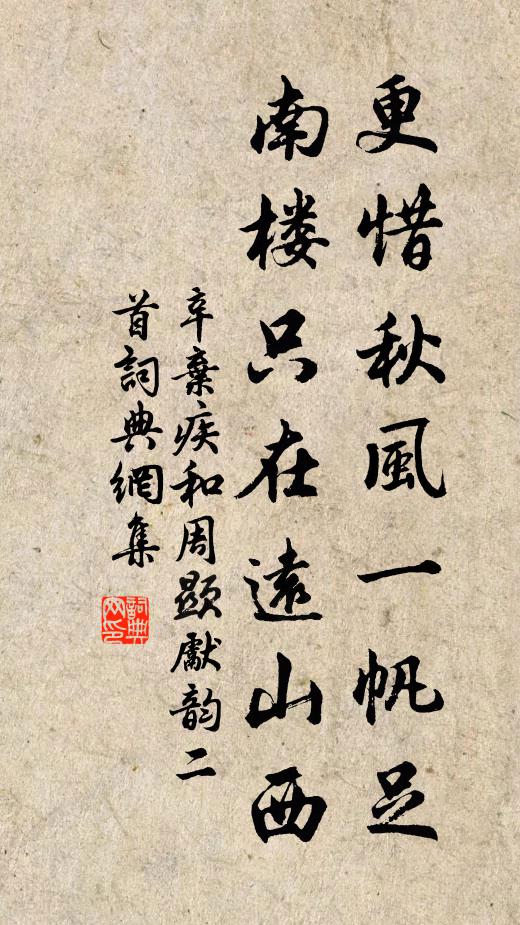 更惜秋風一帆足
南楼只在遠山西
辛棄疾和周顯獻韵二
首詞典網集
詞典網印